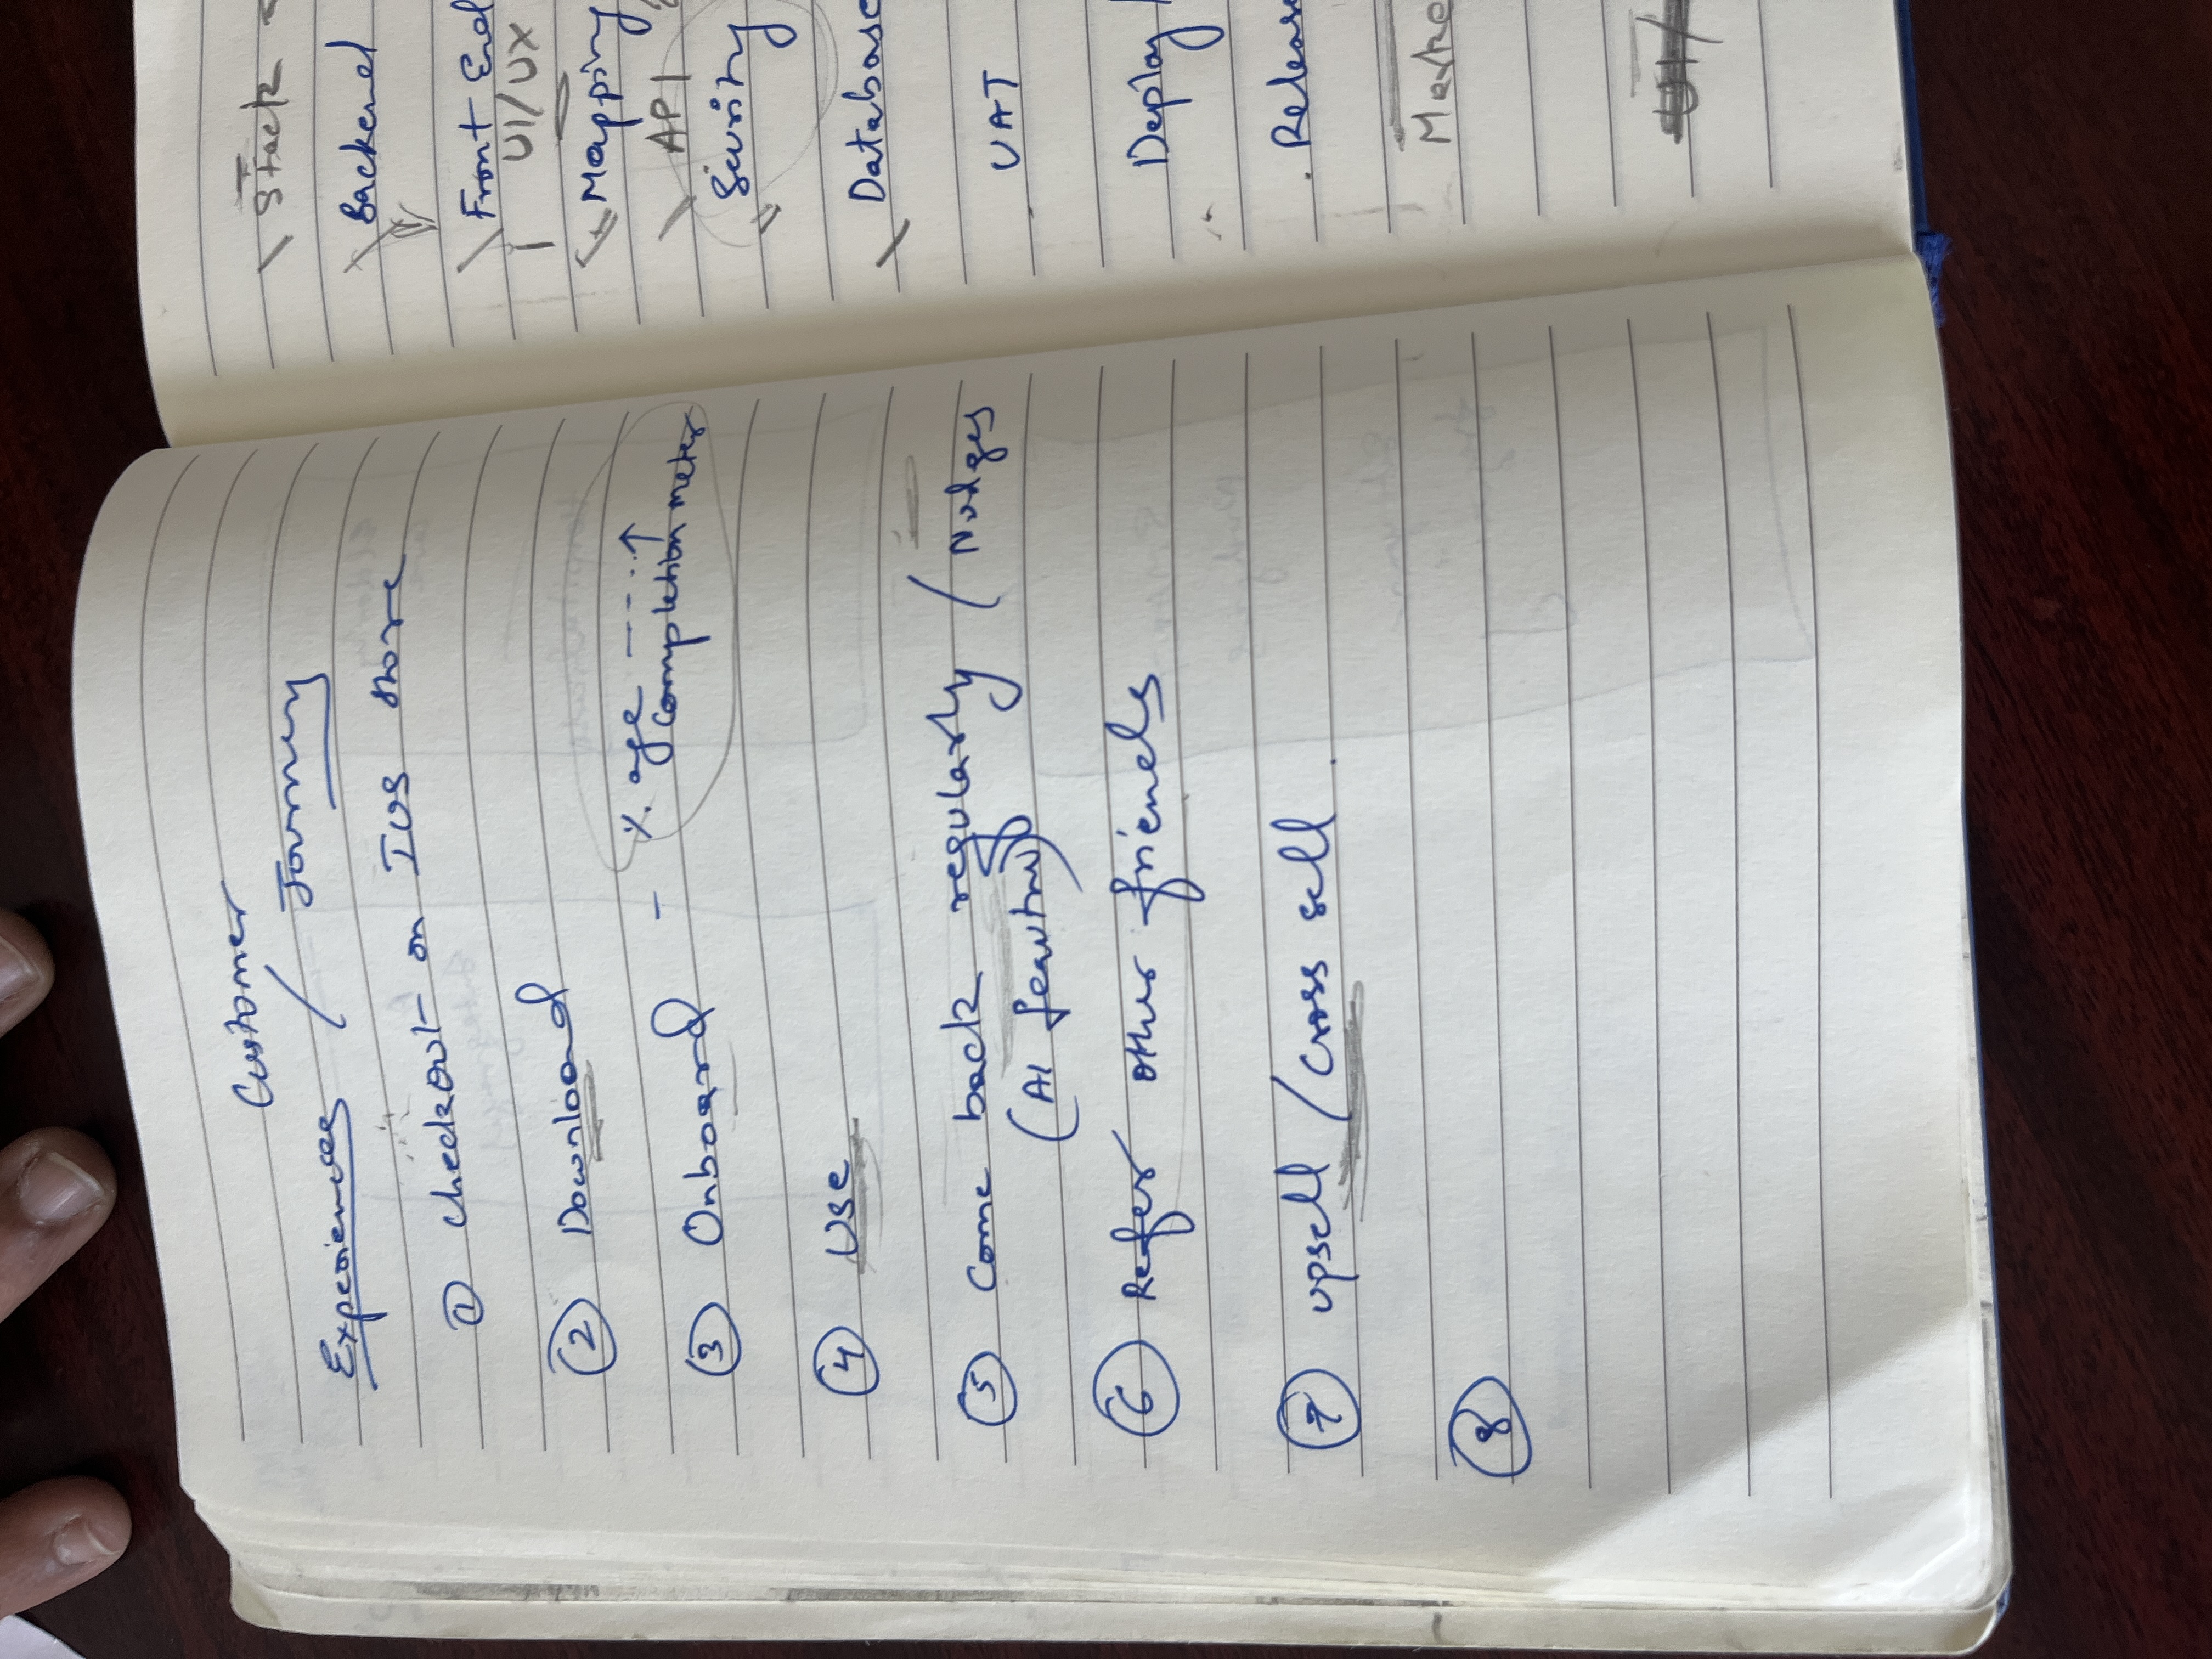 Customer
Experiences / Journey
① checkout on IOS store
② Download
③ Onboard - %. age ----↑
completion meter
④ Use
⑤ Come back regularly / Nudges
(AI feature)
⑥ Refer other friends
⑦ upsell / cross sell.
⑧
Stack
Backend
Front End
UI/UX
Mapping
API
Database
UAT
Deploy /
Release
Marke
UI/